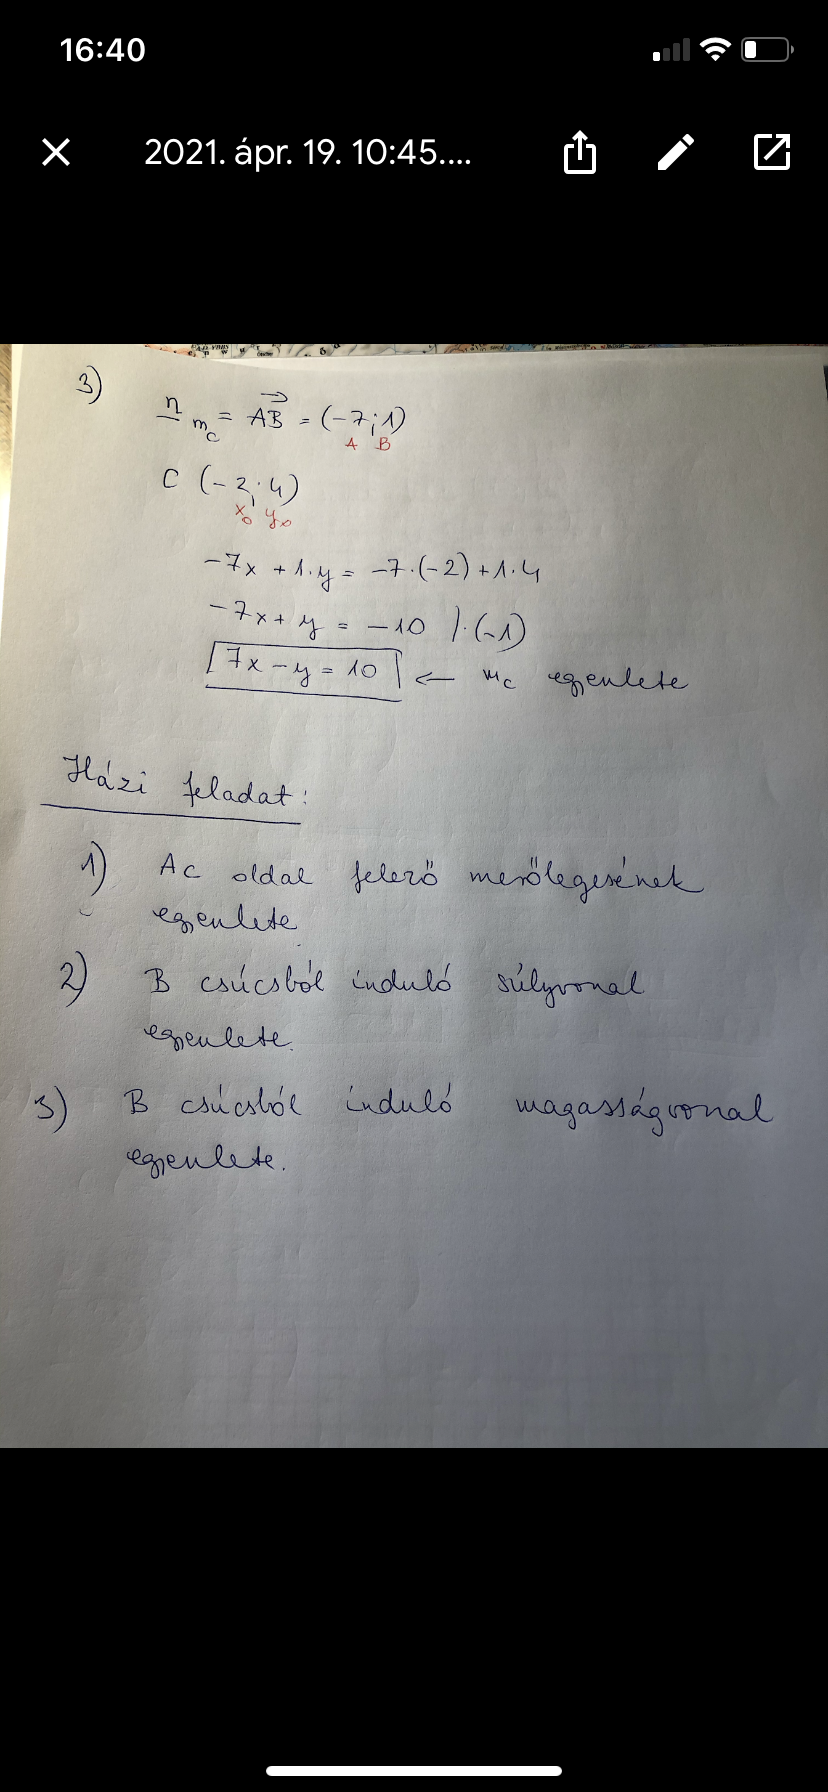 16:40
2021. ápr. 19. 10:45....
3)
n m_c = AB = (-7;1)
A B
C (-2;4)
x₀ y₀
-7x + 1·y = -7·(-2)+1·4
-7x + y = -10 /·(-1)
7x - y = 10 ← m_c egyenlete
Házi feladat:
1) AC oldal felező merőlegesének
egyenlete
2) B csúcsból induló súlyvonal
egyenlete.
3) B csúcsból induló magasságvonal
egyenlete.